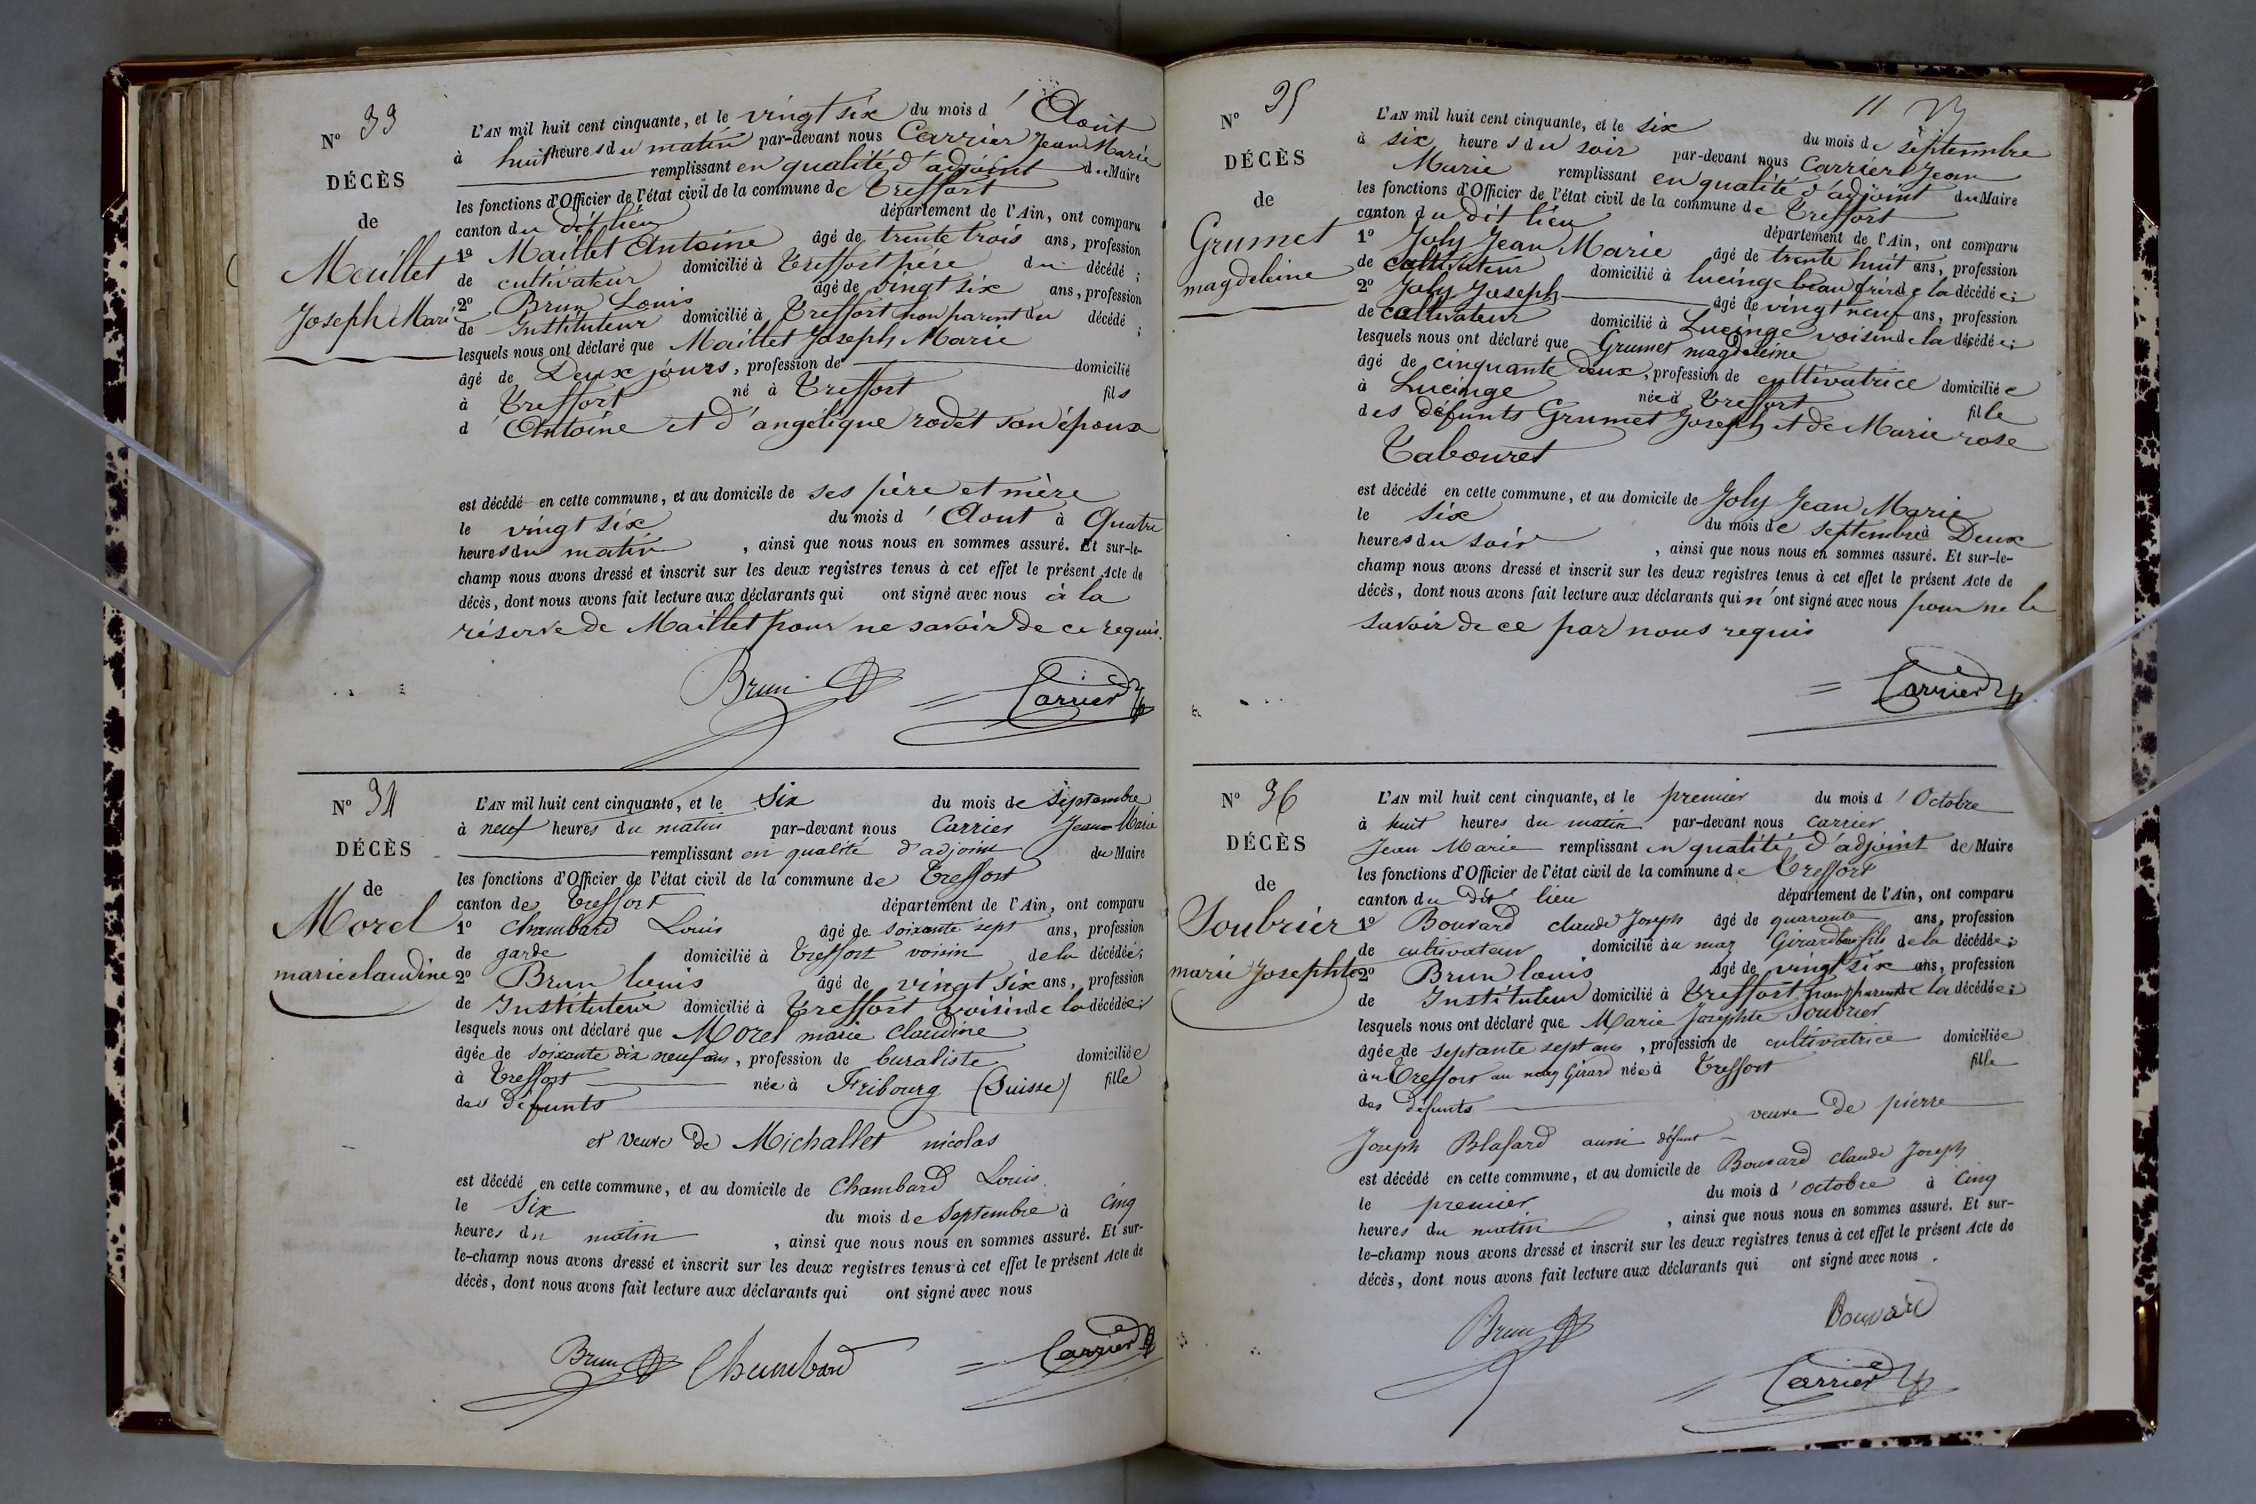 N° 33
DÉCÈS
de
Maillet
Joseph Marie
L'AN mil huit cent cinquante, et le vingt six du mois d'Août
à huit heures du matin par-devant nous Carrier Jean Marie
remplissant en qualité d'adjoint du Maire
les fonctions d'Officier de l'état civil de la commune de Treffort
canton du dit lieu département de l'Ain, ont comparu
1° Maillet Antoine âgé de trente trois ans, profession
de cultivateur domicilié à Treffort père du décédé ;
2° Brun Louis âgé de vingt six ans, profession
de Instituteur domicilié à Treffort non parent du décédé ;
lesquels nous ont déclaré que Maillet Joseph Marie
âgé de Deux jours, profession de domicilié
à Treffort né à Treffort fils
d'Antoine et d'angélique rodet son épouse
est décédé en cette commune, et au domicile de ses père et mère
le vingt six du mois d'Aout à Quatre
heures du matin, ainsi que nous nous en sommes assuré. Et sur-le-
champ nous avons dressé et inscrit sur les deux registres tenus à cet effet le présent Acte de
décès, dont nous avons fait lecture aux déclarants qui ont signé avec nous à la
réserve de Maillet pour ne savoir de ce requis.
Brun Carrier
N° 34
DÉCÈS
de
Morel
marie claudine
L'AN mil huit cent cinquante, et le Six du mois de Septembre
à neuf heures du matin par-devant nous Carrier Jean Marie
remplissant en qualité d'adjoint du Maire
les fonctions d'Officier de l'état civil de la commune de Treffort
canton de Treffort département de l'Ain, ont comparu
1° Chambard Louis âgé de soixante sept ans, profession
de garde domicilié à Treffort voisin de la décédée;
2° Brun louis âgé de vingt six ans, profession
de Instituteur domicilié à Treffort voisin de la décédée;
lesquels nous ont déclaré que Morel marie claudine
âgée de soixante dix neuf ans, profession de buraliste domiciliée
à Treffort née à Fribourg (Suisse) fille
des défunts
et veuve de Michallet nicolas
est décédé en cette commune, et au domicile de Chambard Louis
le Six du mois de Septembre à Cinq
heures du matin, ainsi que nous nous en sommes assuré. Et sur-
le-champ nous avons dressé et inscrit sur les deux registres tenus à cet effet le présent Acte de
décès, dont nous avons fait lecture aux déclarants qui ont signé avec nous
Brun Chambard Carrier
11
N° 35
DÉCÈS
de
Grumet
magdeleine
L'AN mil huit cent cinquante, et le six du mois de septembre
à six heures du soir par-devant nous Carrier Jean
Marie remplissant en qualité d'adjoint du Maire
les fonctions d'Officier de l'état civil de la commune de Treffort
canton du dit lieu département de l'Ain, ont comparu
1° Joly Jean Marie âgé de trente huit ans, profession
de cultivateur domicilié à lucinge beau frère de la décédée;
2° Joly Joseph âgé de vingt neuf ans, profession
de cultivateur domicilié à Lucinge voisin de la décédée;
lesquels nous ont déclaré que Grumet magdeleine
âgé de cinquante deux, profession de cultivatrice domiciliée
à Lucinge née à Treffort fille
des défunts Grumet Joseph et de Marie rose
Tabouret
est décédé en cette commune, et au domicile de Joly Jean Marie
le six du mois de septembre à Deux
heures du soir, ainsi que nous nous en sommes assuré. Et sur-le-
champ nous avons dressé et inscrit sur les deux registres tenus à cet effet le présent Acte de
décès, dont nous avons fait lecture aux déclarants qui n'ont signé avec nous pour ne le
savoir de ce par nous requis
Carrier
N° 36
DÉCÈS
de
Soubrier
marie Josephte
L'AN mil huit cent cinquante, et le premier du mois d'Octobre
à huit heures du matin par-devant nous Carrier
Jean Marie remplissant en qualité d'adjoint de Maire
les fonctions d'Officier de l'état civil de la commune de Treffort
canton du dit lieu département de l'Ain, ont comparu
1° Bouvard claude Joseph âgé de quarante ans, profession
de cultivateur domicilié au maz Girard beau fils de la décédée;
2° Brun louis âgé de vingt six ans, profession
de Instituteur domicilié à Treffort non parent de la décédée;
lesquels nous ont déclaré que Marie Josephte Soubrier
âgée de septante sept ans, profession de cultivatrice domiciliée
à Treffort au maz Girard née à Treffort fille
des défunts veuve de pierre
Joseph Blafard aussi défunt
est décédé en cette commune, et au domicile de Bouvard claude Joseph
le premier du mois d'octobre à Cinq
heures du matin, ainsi que nous nous en sommes assuré. Et sur-
le-champ nous avons dressé et inscrit sur les deux registres tenus à cet effet le présent Acte de
décès, dont nous avons fait lecture aux déclarants qui ont signé avec nous.
Brun Bouvard
Carrier